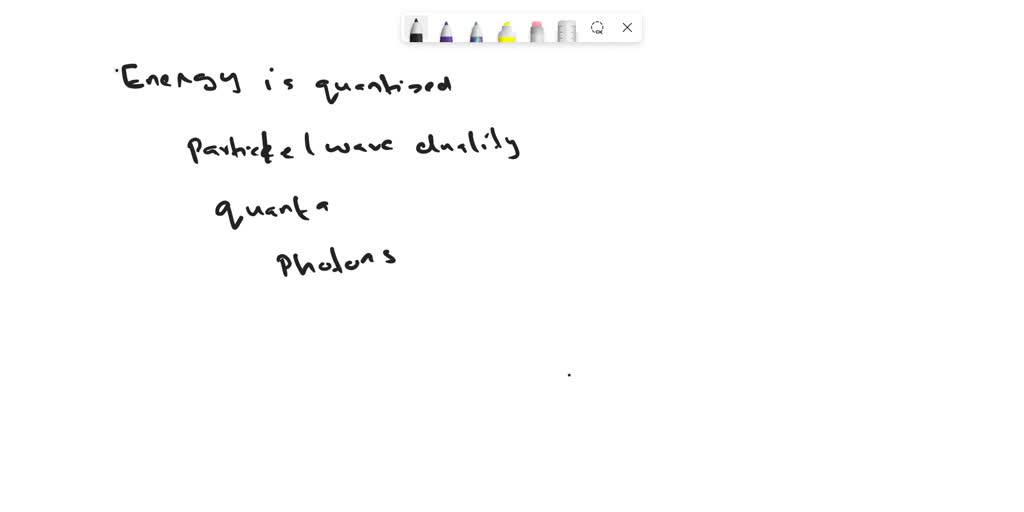 Energy is quantised
Particle / wave duality
quanta
Photons